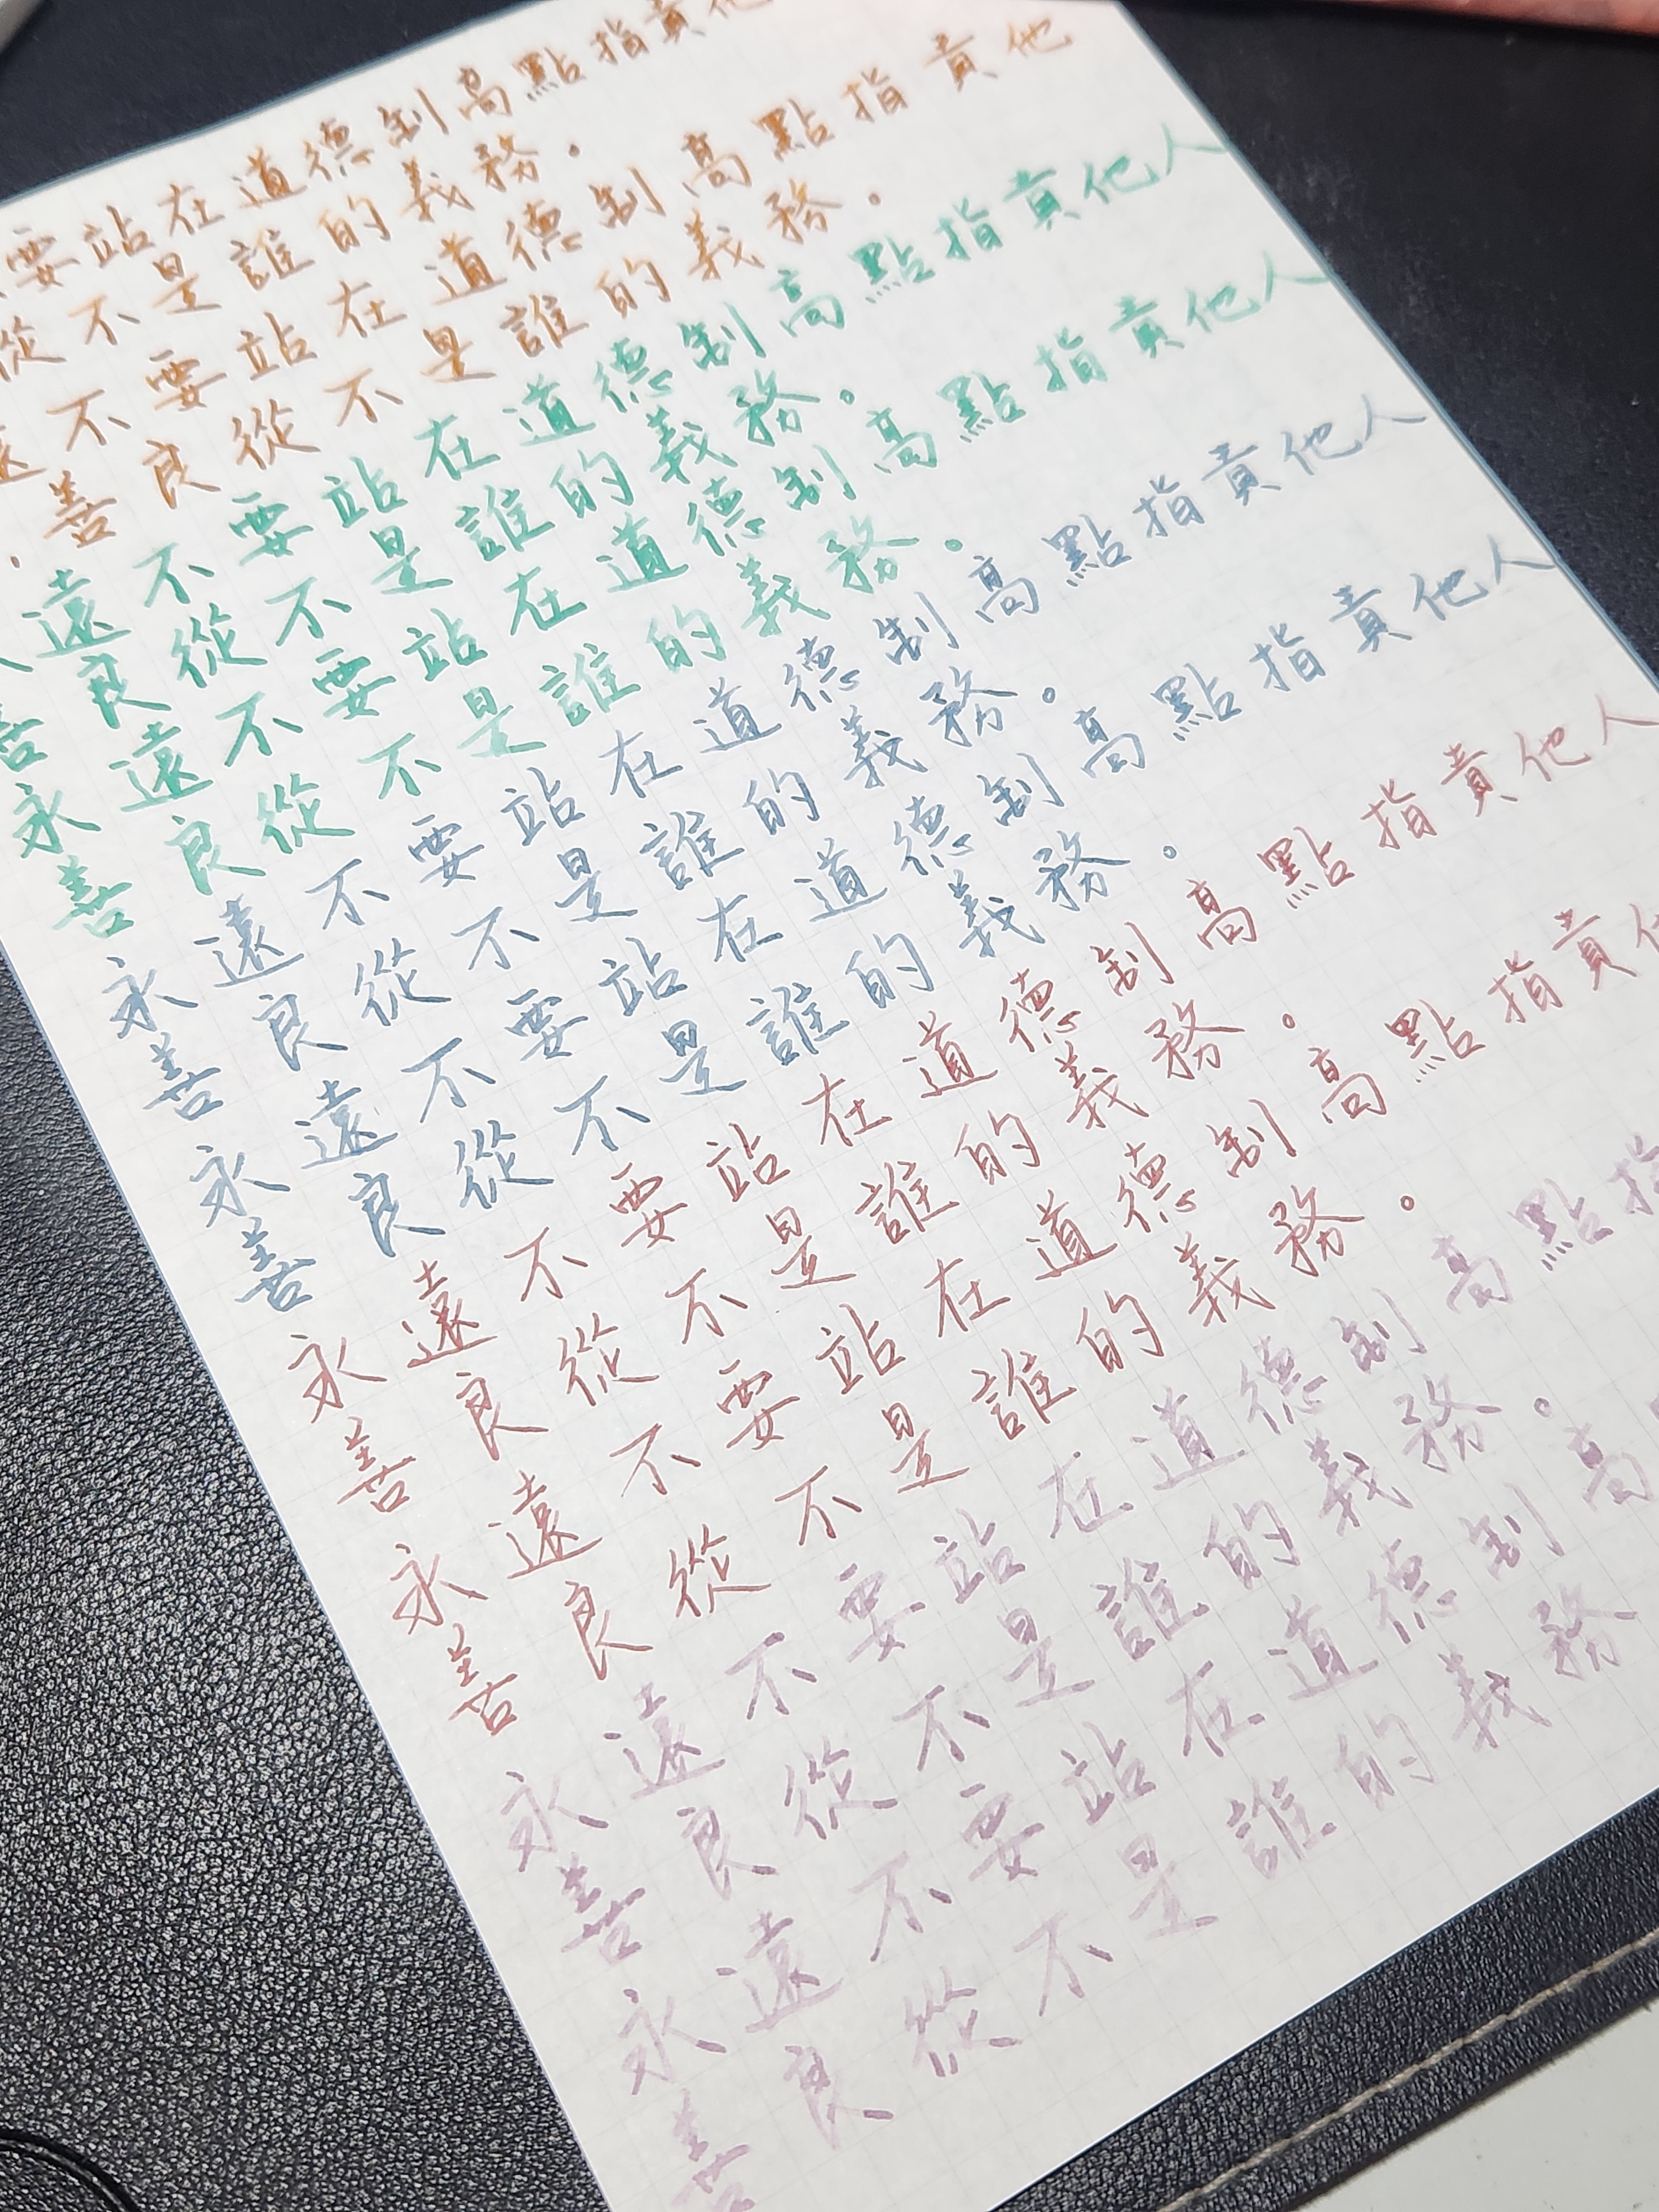 要站在道德制高點指責他
從不是誰的義務。
遠不要站在道德制高點指責他
善良從不是誰的義務。
遠不要站在道德制高點指責他人
善良從不是誰的義務。
永遠不要站在道德制高點指責他人
善良從不是誰的義務。
永遠不要站在道德制高點指責他人
善良從不是誰的義務。
永遠不要站在道德制高點指責他人
善良從不是誰的義務。
永遠不要站在道德制高點指責他人
善良從不是誰的義務。
永遠不要站在道德制高點指責
善良從不是誰的義務。
永遠不要站在道德制高點指
善良從不是誰的義務。
永遠不要站在道德制高
善良從不是誰的義務